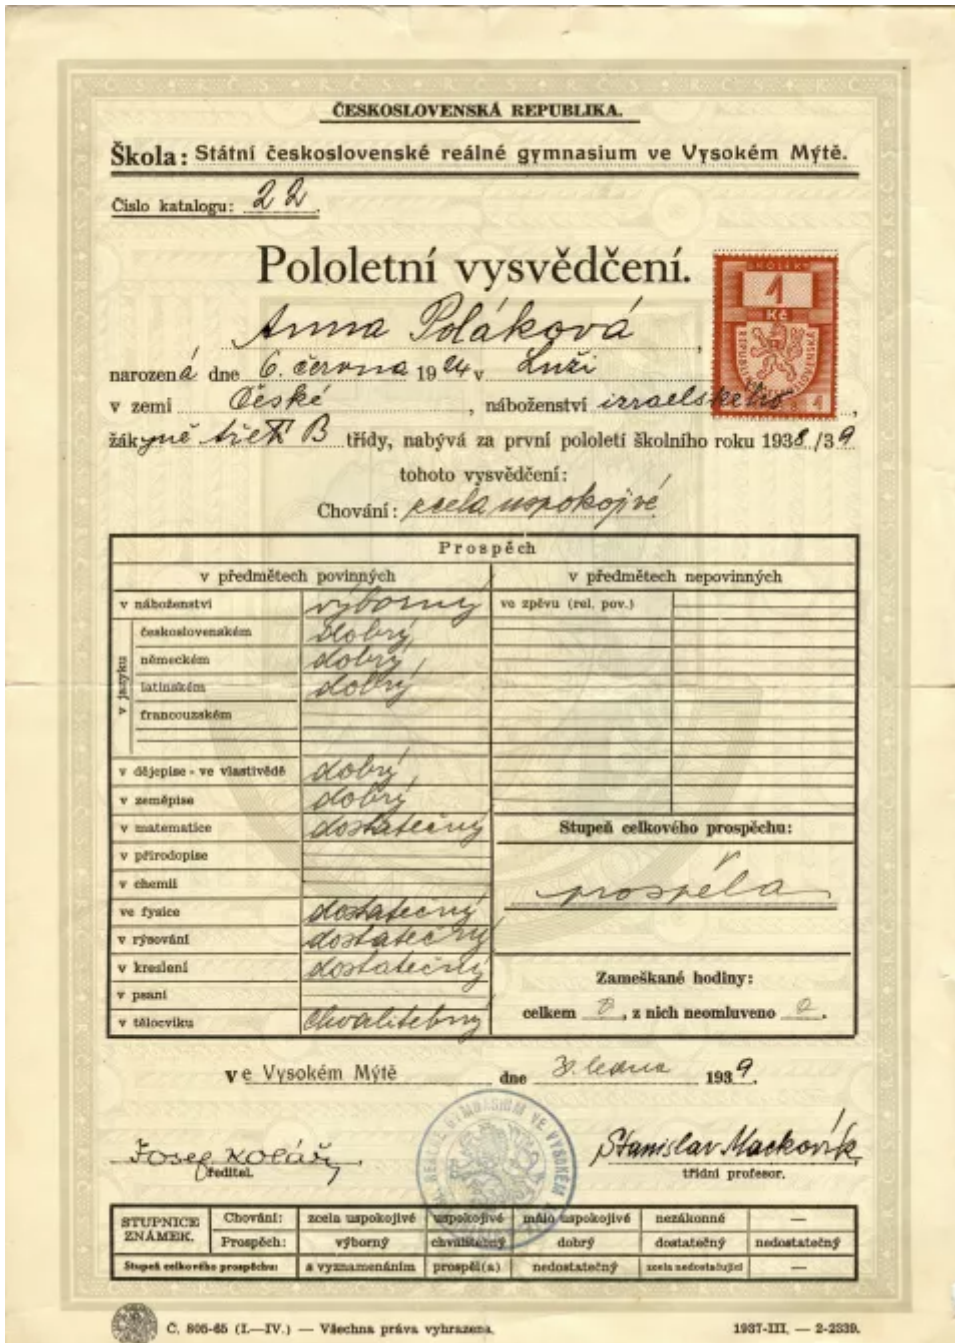 ČESKOSLOVENSKÁ REPUBLIKA.
Škola: Státní československé reálné gymnasium ve Vysokém Mýtě.
Číslo katalogu: 22.
Pololetní vysvědčení.
KOLEK
1
Kč
REPUBLIKA ČESKOSLOVENSKÁ
1
Anna Poláková,
narozená dne 6. června 1924 v Luži
v zemi České, náboženství izraelského,
žákyně třetí B třídy, nabývá za první pololetí školního roku 1938/39
tohoto vysvědčení:
Chování: zcela uspokojivé
Prospěch
v předmětech povinných v předmětech nepovinných
v náboženství výborný ve zpěvu (rel. pov.)
v jazyku
československém dobrý
německém dobrý
latinském dobrý
francouzském
v dějepise - ve vlastivědě dobrý
v zeměpise dobrý
v matematice dostatečný Stupeň celkového prospěchu:
v přírodopise
v chemii prospěla
ve fysice dostatečný
v rýsování dostatečný
v kreslení dostatečný Zameškané hodiny:
v psaní
v tělocviku chvalitebný celkem, z nich neomluveno.
ve Vysokém Mýtě dne ledna 1939.
REÁLNÉ GYMNASIUM VE VYSOKÉM
Josef Kolář, Stanislav Mackovík
ředitel. třídní profesor.
STUPNICE ZNÁMEK. Chování: zcela uspokojivé uspokojivé málo uspokojivé nezákonné —
Prospěch: výborný chvalitebný dobrý dostatečný nedostatečný
Stupeň celkového prospěchu: s vyznamenáním prospěl(a) nedostatečný zcela nedostačující —
Č. 805-65 (I.—IV.) — Všechna práva vyhrazena. 1937-III. — 2-2339.